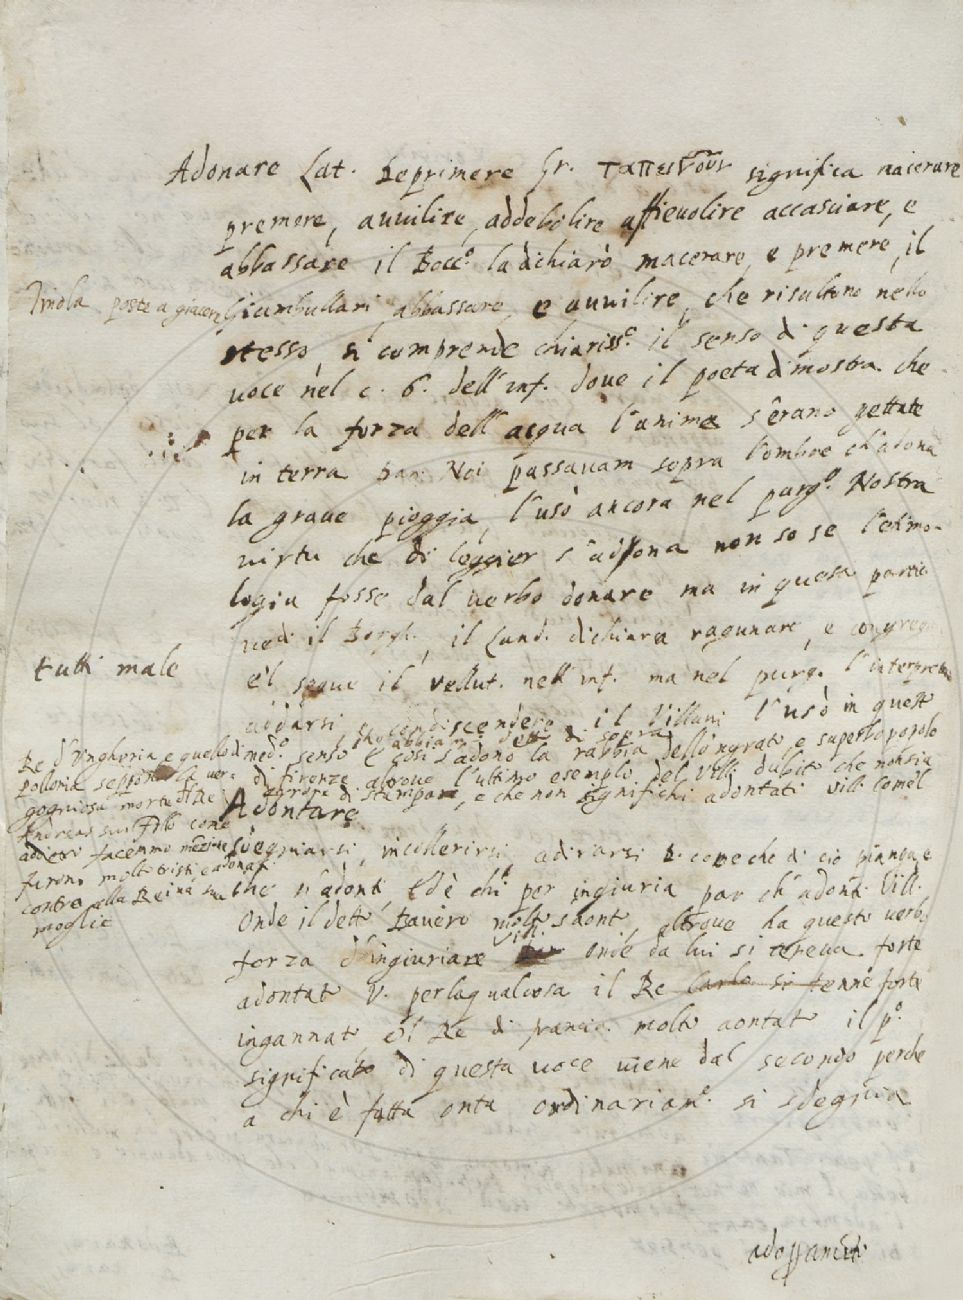 Adonare Lat. Deprimere Gr. ταπεινοῦν significa macerare
premere, auuilire, addebolire affieuolire accasciare, e
abbassare il Bocc.º la dichiarò macerare, e premere, il
Giambullari, abbassare, e auuilire, che risultono nello
stesso, si comprende chiariss.º il senso di questa
uoce nel c. 6. dell'inf. doue il poeta dimostra che
per la forza dell'acqua l'anime s'erano gettate
in terra Dan. Noi passauam sopra l'ombre ch'adona
la graue pioggia, l'usò ancora nel purg.º Nostra
uirtu che di leggier s'adona non so se l'etimo-
logia fosse dal uerbo donare ma in questa
ued. il Borgh. il Land. dichiara ragunare, e congregare
e'l segue il Vellut. nell'inf. ma nel purg. l'interpreta
addarsi il Villani l'usò in questo
med.º senso E così s'adonò la rabbia dello'ngrato, e superbo popolo
di firenze l'ultimo esemplo del Vill. dubito che non sia
errore di stampare, e che non significhi adontati Vill. come'l
Adontare
sdegniarsi, incollerirsi, adirarsi D. come che di ciò pianga, e
che n'adonti, Ed è chi per ingiuria par ch'adonti Vill.
Onde il detto Bauero molto s'aontò, altroue ha questo uerbo
forza d'ingiuriare Vill. onde da lui si teneua forte
adontato V. per la qual cosa il Re Carlo si tenne forte
ingannato, e'l Re di francia molto aontato il p.º
significato di questa uoce uiene dal secondo perche
a chi è fatta onta ordinariam.º si sdegnia
adossamẽto
poste a giacere
tutti male
Re d'Vngheria, e quello di
pollonia seppono la uer-
gogniosa morte del Re
Andreas suo frello come
adietro facemmo menzione
furono molto tristi, e adonati
contro alla Reina sua
moglie